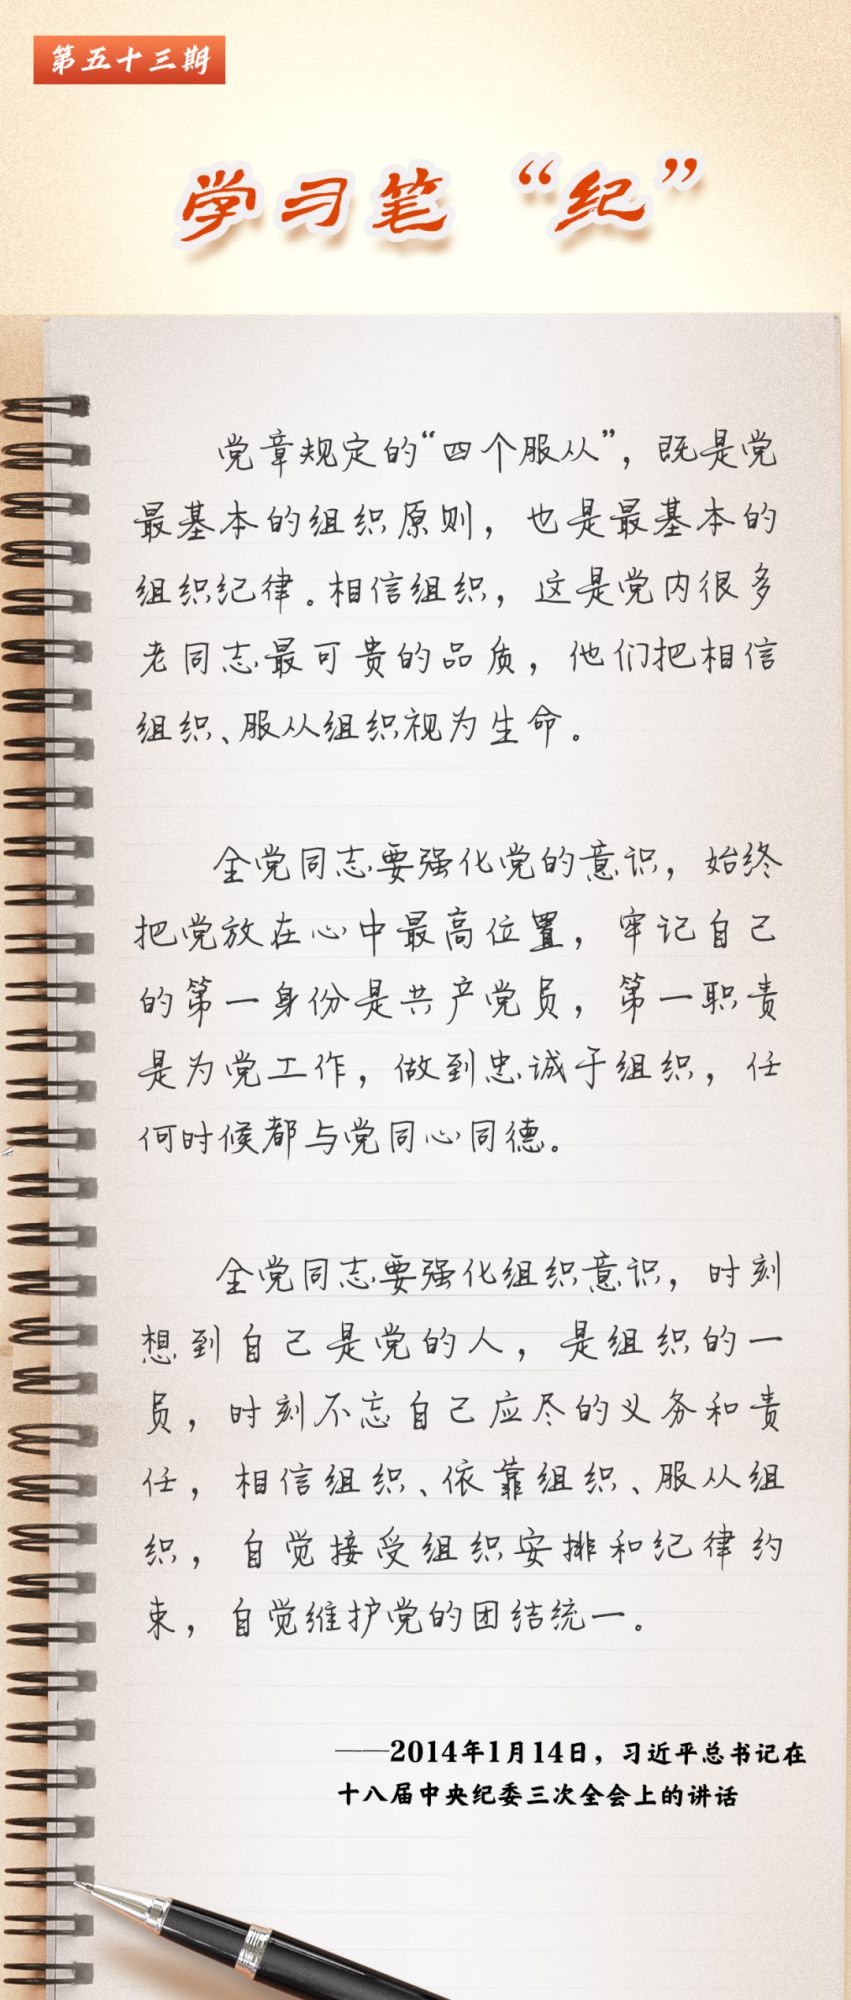 第五十三期
学习笔“纪”
党章规定的“四个服从”，既是党
最基本的组织原则，也是最基本的
组织纪律。相信组织，这是党内很多
老同志最可贵的品质，他们把相信
组织、服从组织视为生命。
全党同志要强化党的意识，始终
把党放在心中最高位置，牢记自己
的第一身份是共产党员，第一职责
是为党工作，做到忠诚于组织，任
何时候都与党同心同德。
全党同志要强化组织意识，时刻
想到自己是党的人，是组织的一
员，时刻不忘自己应尽的义务和责
任，相信组织、依靠组织、服从组
织，自觉接受组织安排和纪律约
束，自觉维护党的团结统一。
——2014年1月14日，习近平总书记在
十八届中央纪委三次全会上的讲话